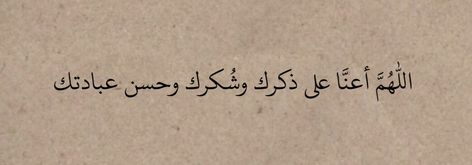 اللهُمَّ أعنَّا على ذكرك وشُكرك وحسن عبادتك